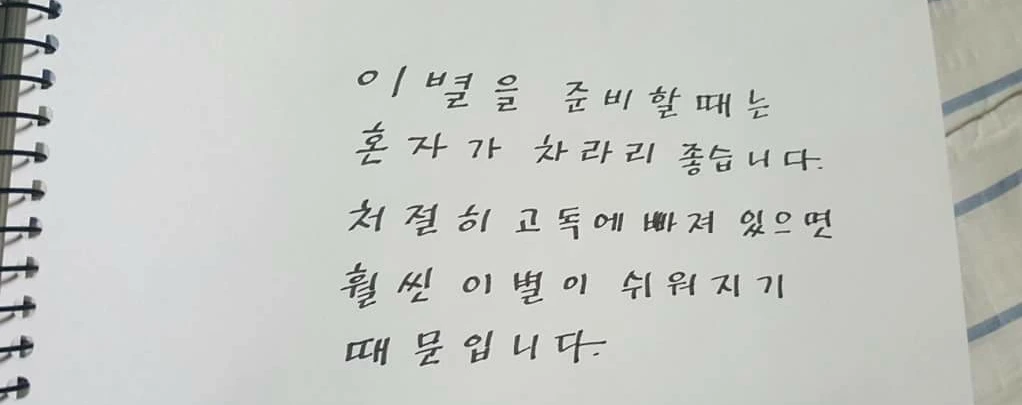 이별을 준비할때는
혼자가 차라리 좋습니다.
처절히 고독에 빠져 있으면
훨씬 이별이 쉬워지기
때문입니다.